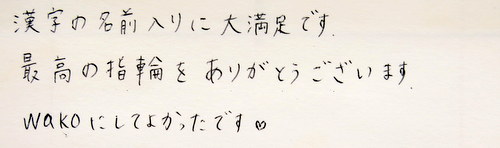 漢字の名前入りに大満足です.
最高の指輪をありがとうございます.
WAKOにしてよかったです♡